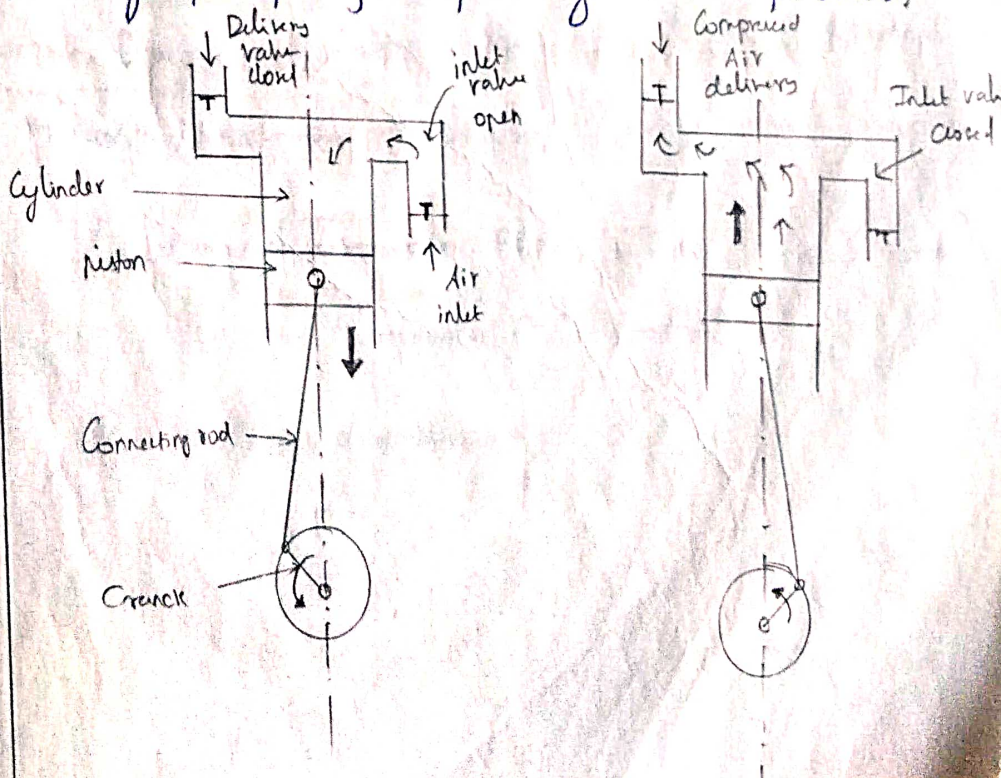 Delivery
valve
closed
inlet
valve
open
Cylinder
piston
Air
inlet
Connecting rod
Cranck
Compressed
Air
delivery
Inlet val
closed